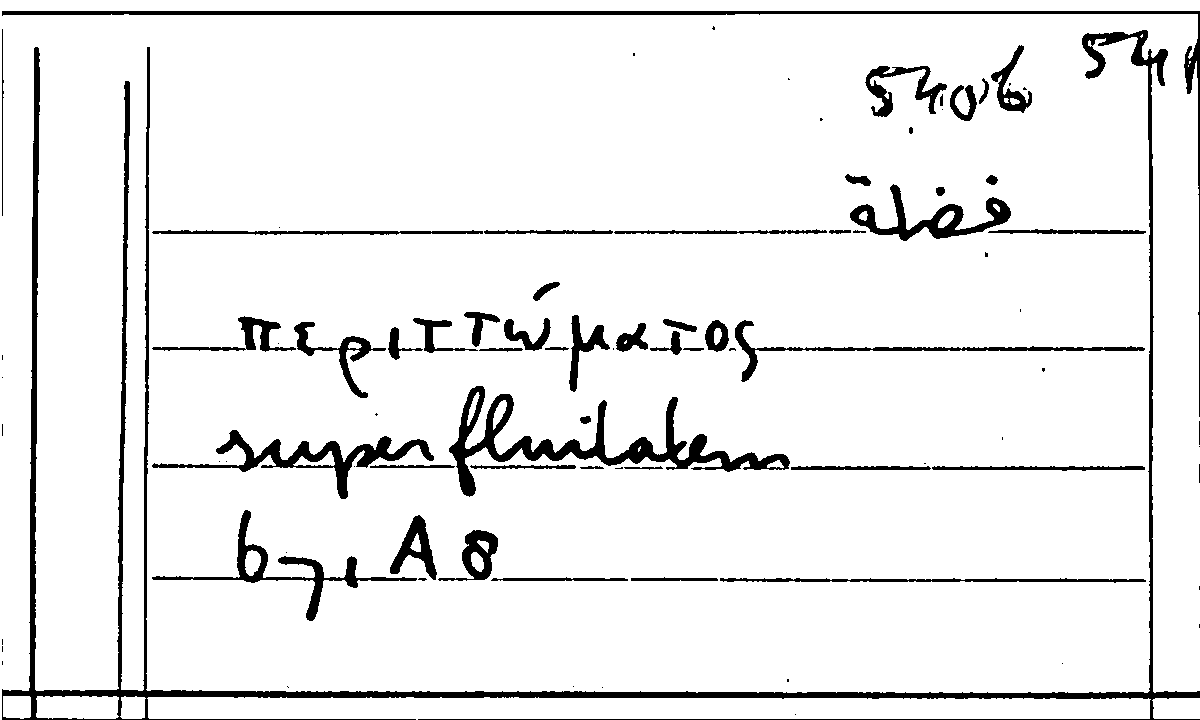 5406
فضلة
περιττώματος
superfluitatem
671 A 8